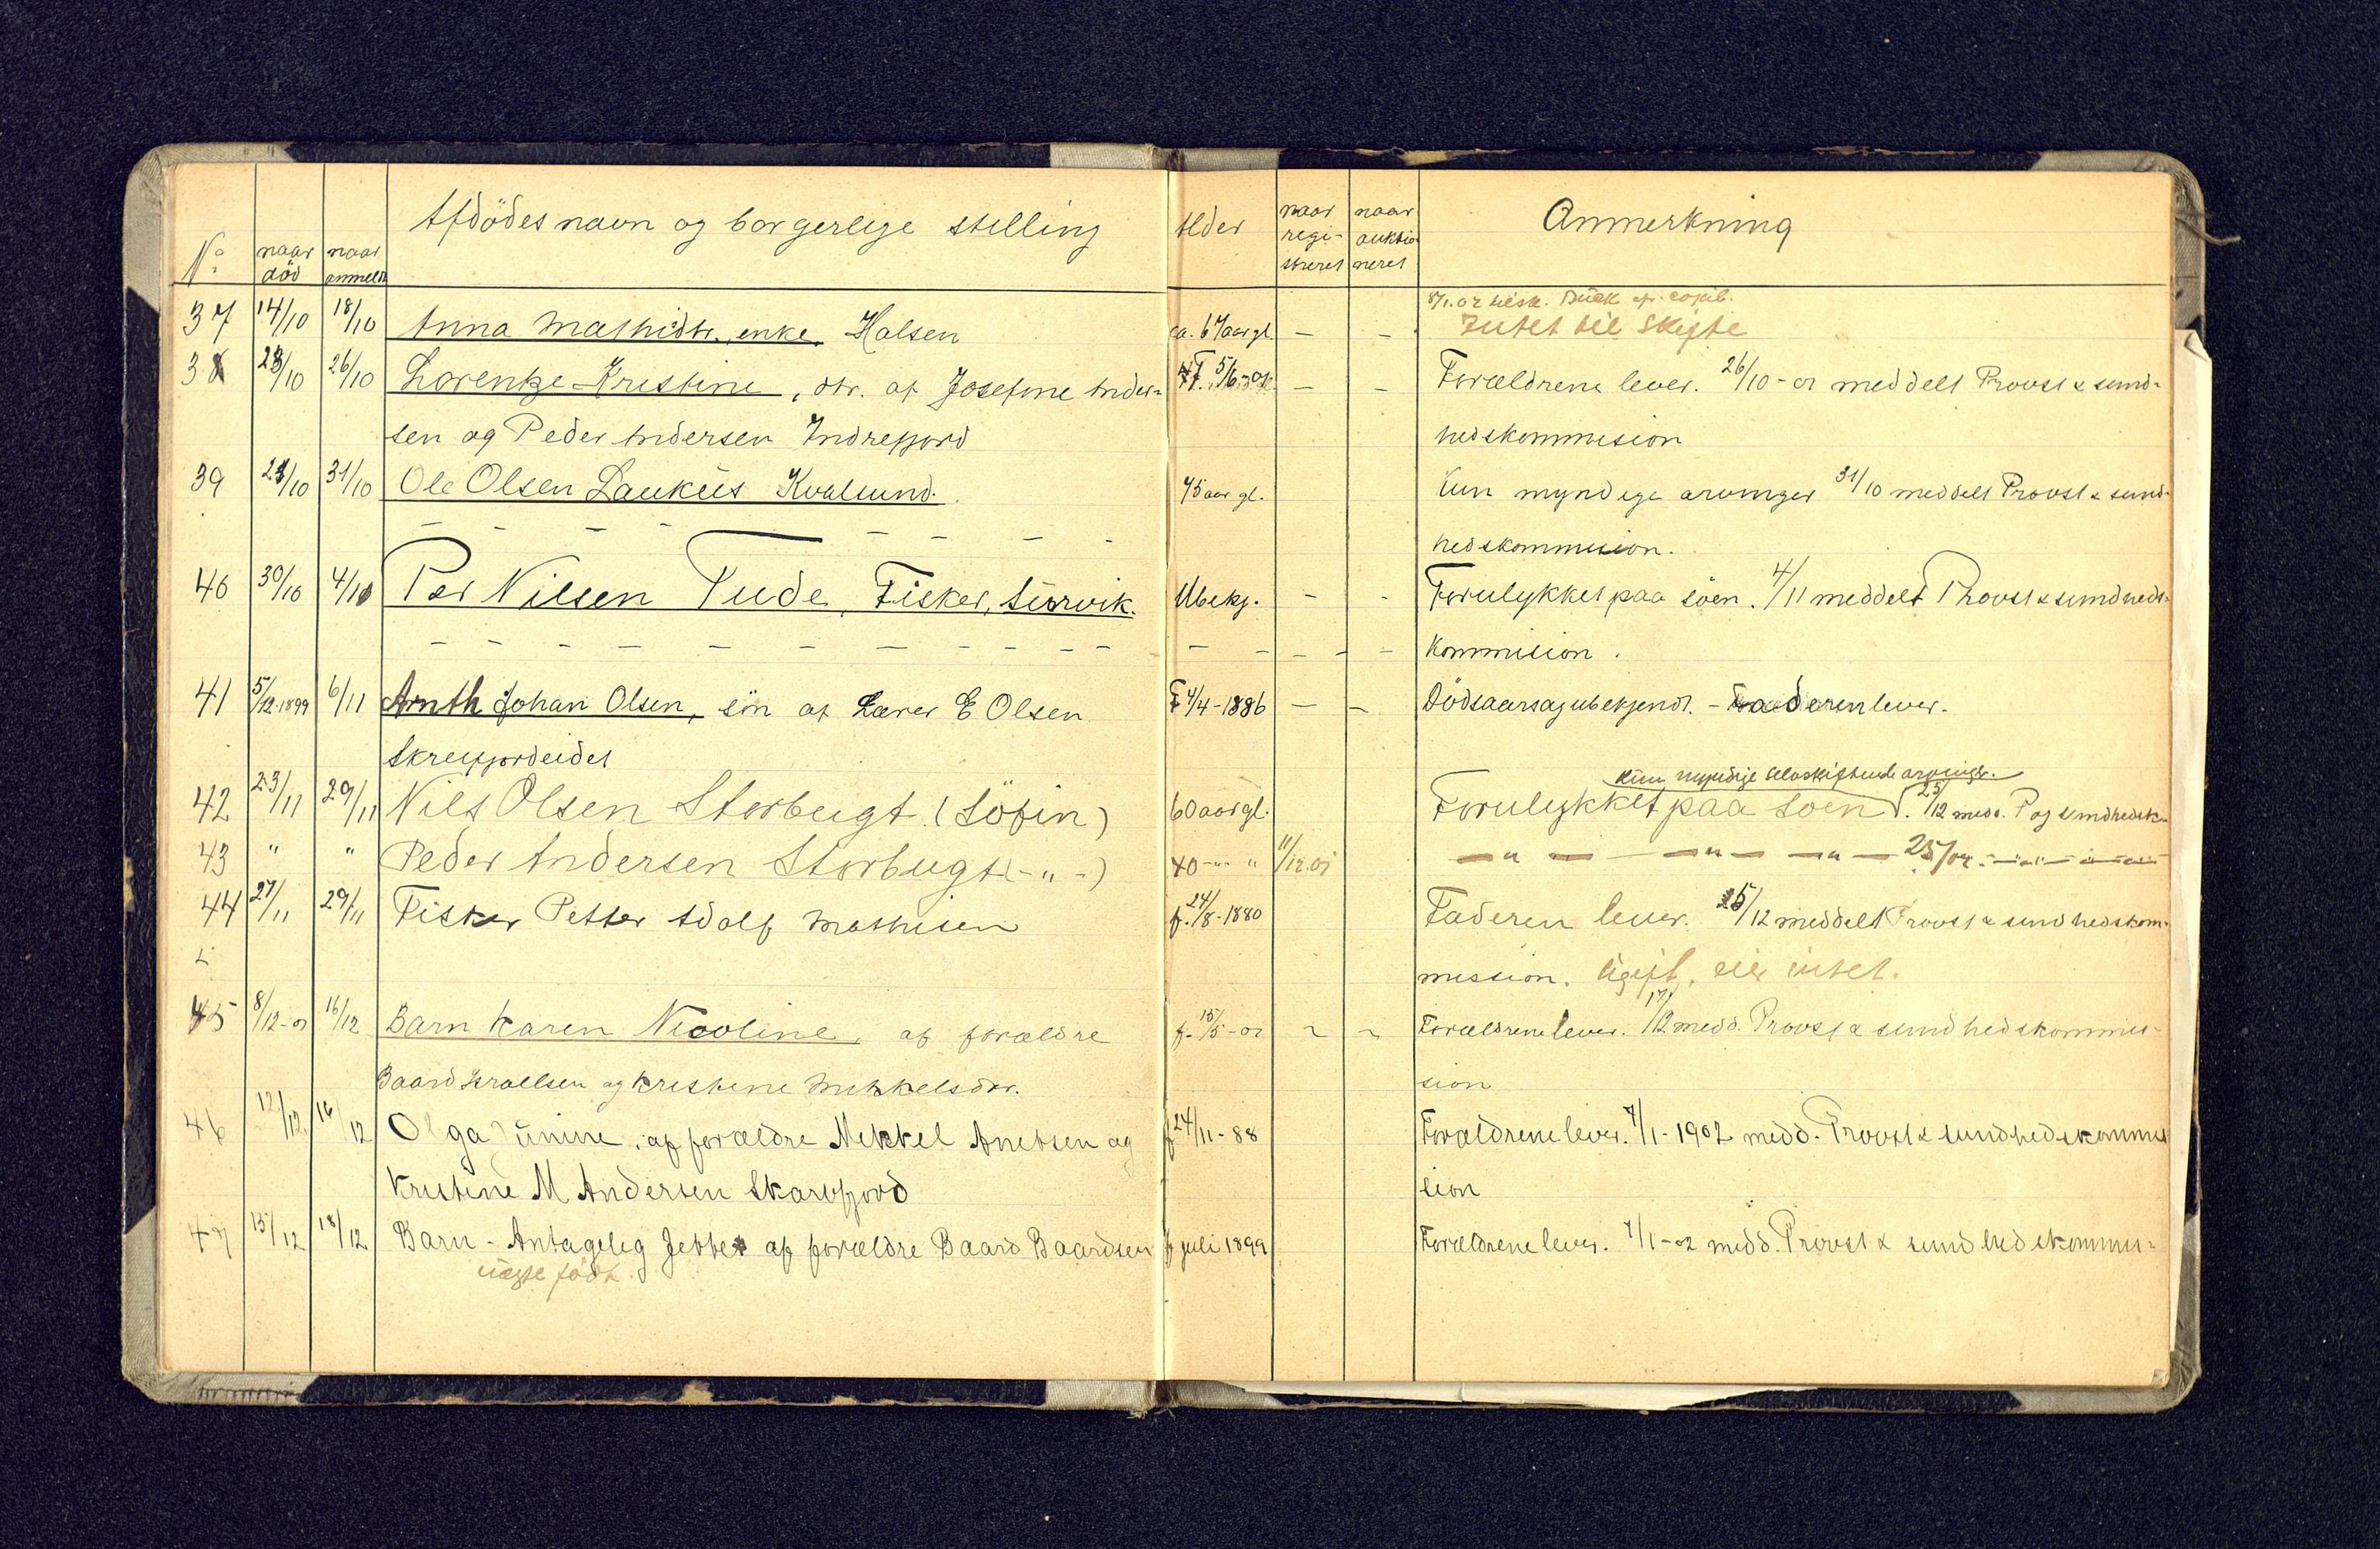 No naar död naar anmeldt Afdödes navn og borgerlige stilling Alder naar regi- streret naar auktio- neret Anmerkning
8/1.02 tilsk.
37 14/10 18/10 Anna Mathisdtr. enke. Halsen ca. 67 aar gl. – – Intet til Skifte
38 23/10 26/10 Lorentze Kristine, dtr. af Josefine Ander- – – Forældrene lever. 26/10-01 meddelt Provst & sund-
sen og Peder Andersen Indrefjord hedskommision
39 31/10 Ole Olsen Laukus Kvalsund. 75 aar gl. Kun myndige arvinger 31/10 meddelt Provst & sund-
hedskommision.
40 30/10 4/10 Per Nilsen Tude, Fisker, Ubekj. – – Forulykket paa söen. 4/11 meddelt Provst & sundheds-
– – – – – – – – – – – – – – – – kommision.
41 5/12-1899 6/11 Arnth Johan Olsen, sön af Lærer E Olsen F 4/4-1886 – – Dödsaarsag ubekjendt. - Faderen lever.
Skreifjordeidet
kun myndige selvskiftende arvinger.
42 23/11 29/11 Nils Olsen Storbugt (Söfin) 60 aar gl. Forulykket paa soen. 25/12 medd. P og sundhedsk.
43 " " Peder Andersen Storbugt (-"-) 40 -"- " 11/12.01 – " – – " – – " –
44 27/11 29/11 Fisker Petter Adolf Mathisen f. 24/8-1880 Faderen lever. 25/12 meddelt Provst & sundhedskom-
mission. Ugift, eier intet.
45 8/12-01 16/12 Barn Karen Nicoline, af forældre f. 15/5-01 ~ ~ Forældrene lever. 17/12 medd. Provst & sundhedskommis-
Baard Israelsen og Kristine Mikkelsdtr. sion
46 12/12 16/12 Olga Junine, af forældre Mikkel Anetsen og f 24/11-88 Forældrene lever. 7/1-1902 medd. Provst & sundhedskommis
Kristine M Andersen Skarvfjord sion
47 15/12 18/12 Barn - Antagelig Jetter af forældre Baard Baardsen f juli 1899 Forældrene lever. 7/1-02 medd. Provst & sundhedskommis-
uægte född.